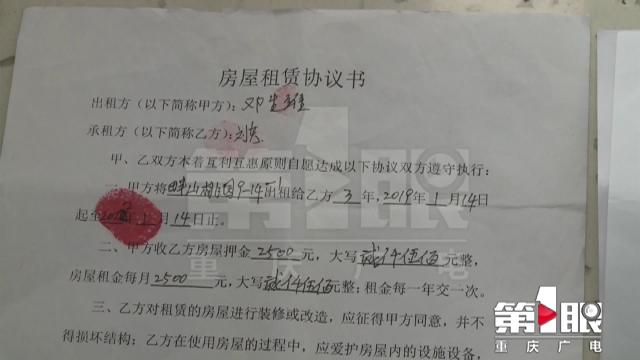 房屋租赁协议书
出租方（以下简称甲方）：邓
承租方（以下简称乙方）：
甲、乙双方本着互利互惠原则自愿达成以下协议双方遵守执行：
一、甲方将 9-14 出租给乙方 3 年，2019年1月14日
起至 月14日正。
二、甲方收乙方房屋押金 2500 元，大写 贰仟伍佰 元整，
房屋租金每月 2500 元，大写 贰仟伍佰 元整；租金每一年交一次。
三、乙方对租赁的房屋进行装修或改造，应征得甲方同意，并不
得损坏结构；乙方在使用房屋的过程中，应爱护房屋内的设施设备，
第1眼
重庆广电
第1眼
重庆广电